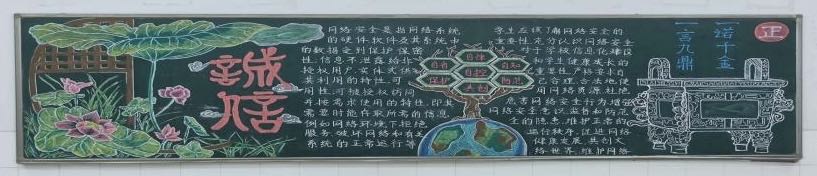 誠信
网络安全是指网络系统
的硬件软件及其系统中
的数据受到保护保密
性,信息不泄露给非
授权用户实体或供
其利用的特性.可
用性,可被授权访问
并按需求使用的特性,即其
需要时能存取所需的信息
例如网络环境下拒绝
服务.破坏网络和有关
系统的正常运行等
自律
自省
自知
自控
保护
防范
共创
学生应该了解网络安全的
重要性,充分认识网络安全
对于学校信息化建设
和学生健康成长的
重要性,严格要求自
已合理.合法地使
用网络资源,杜绝
危害网络安全行为增强
网络安全意识.监督和防范
全的隐患,维护正常的
运行秩序,促进网络
健康发展,共创文
络世界,维护网络
一诺千金
一言九鼎
正